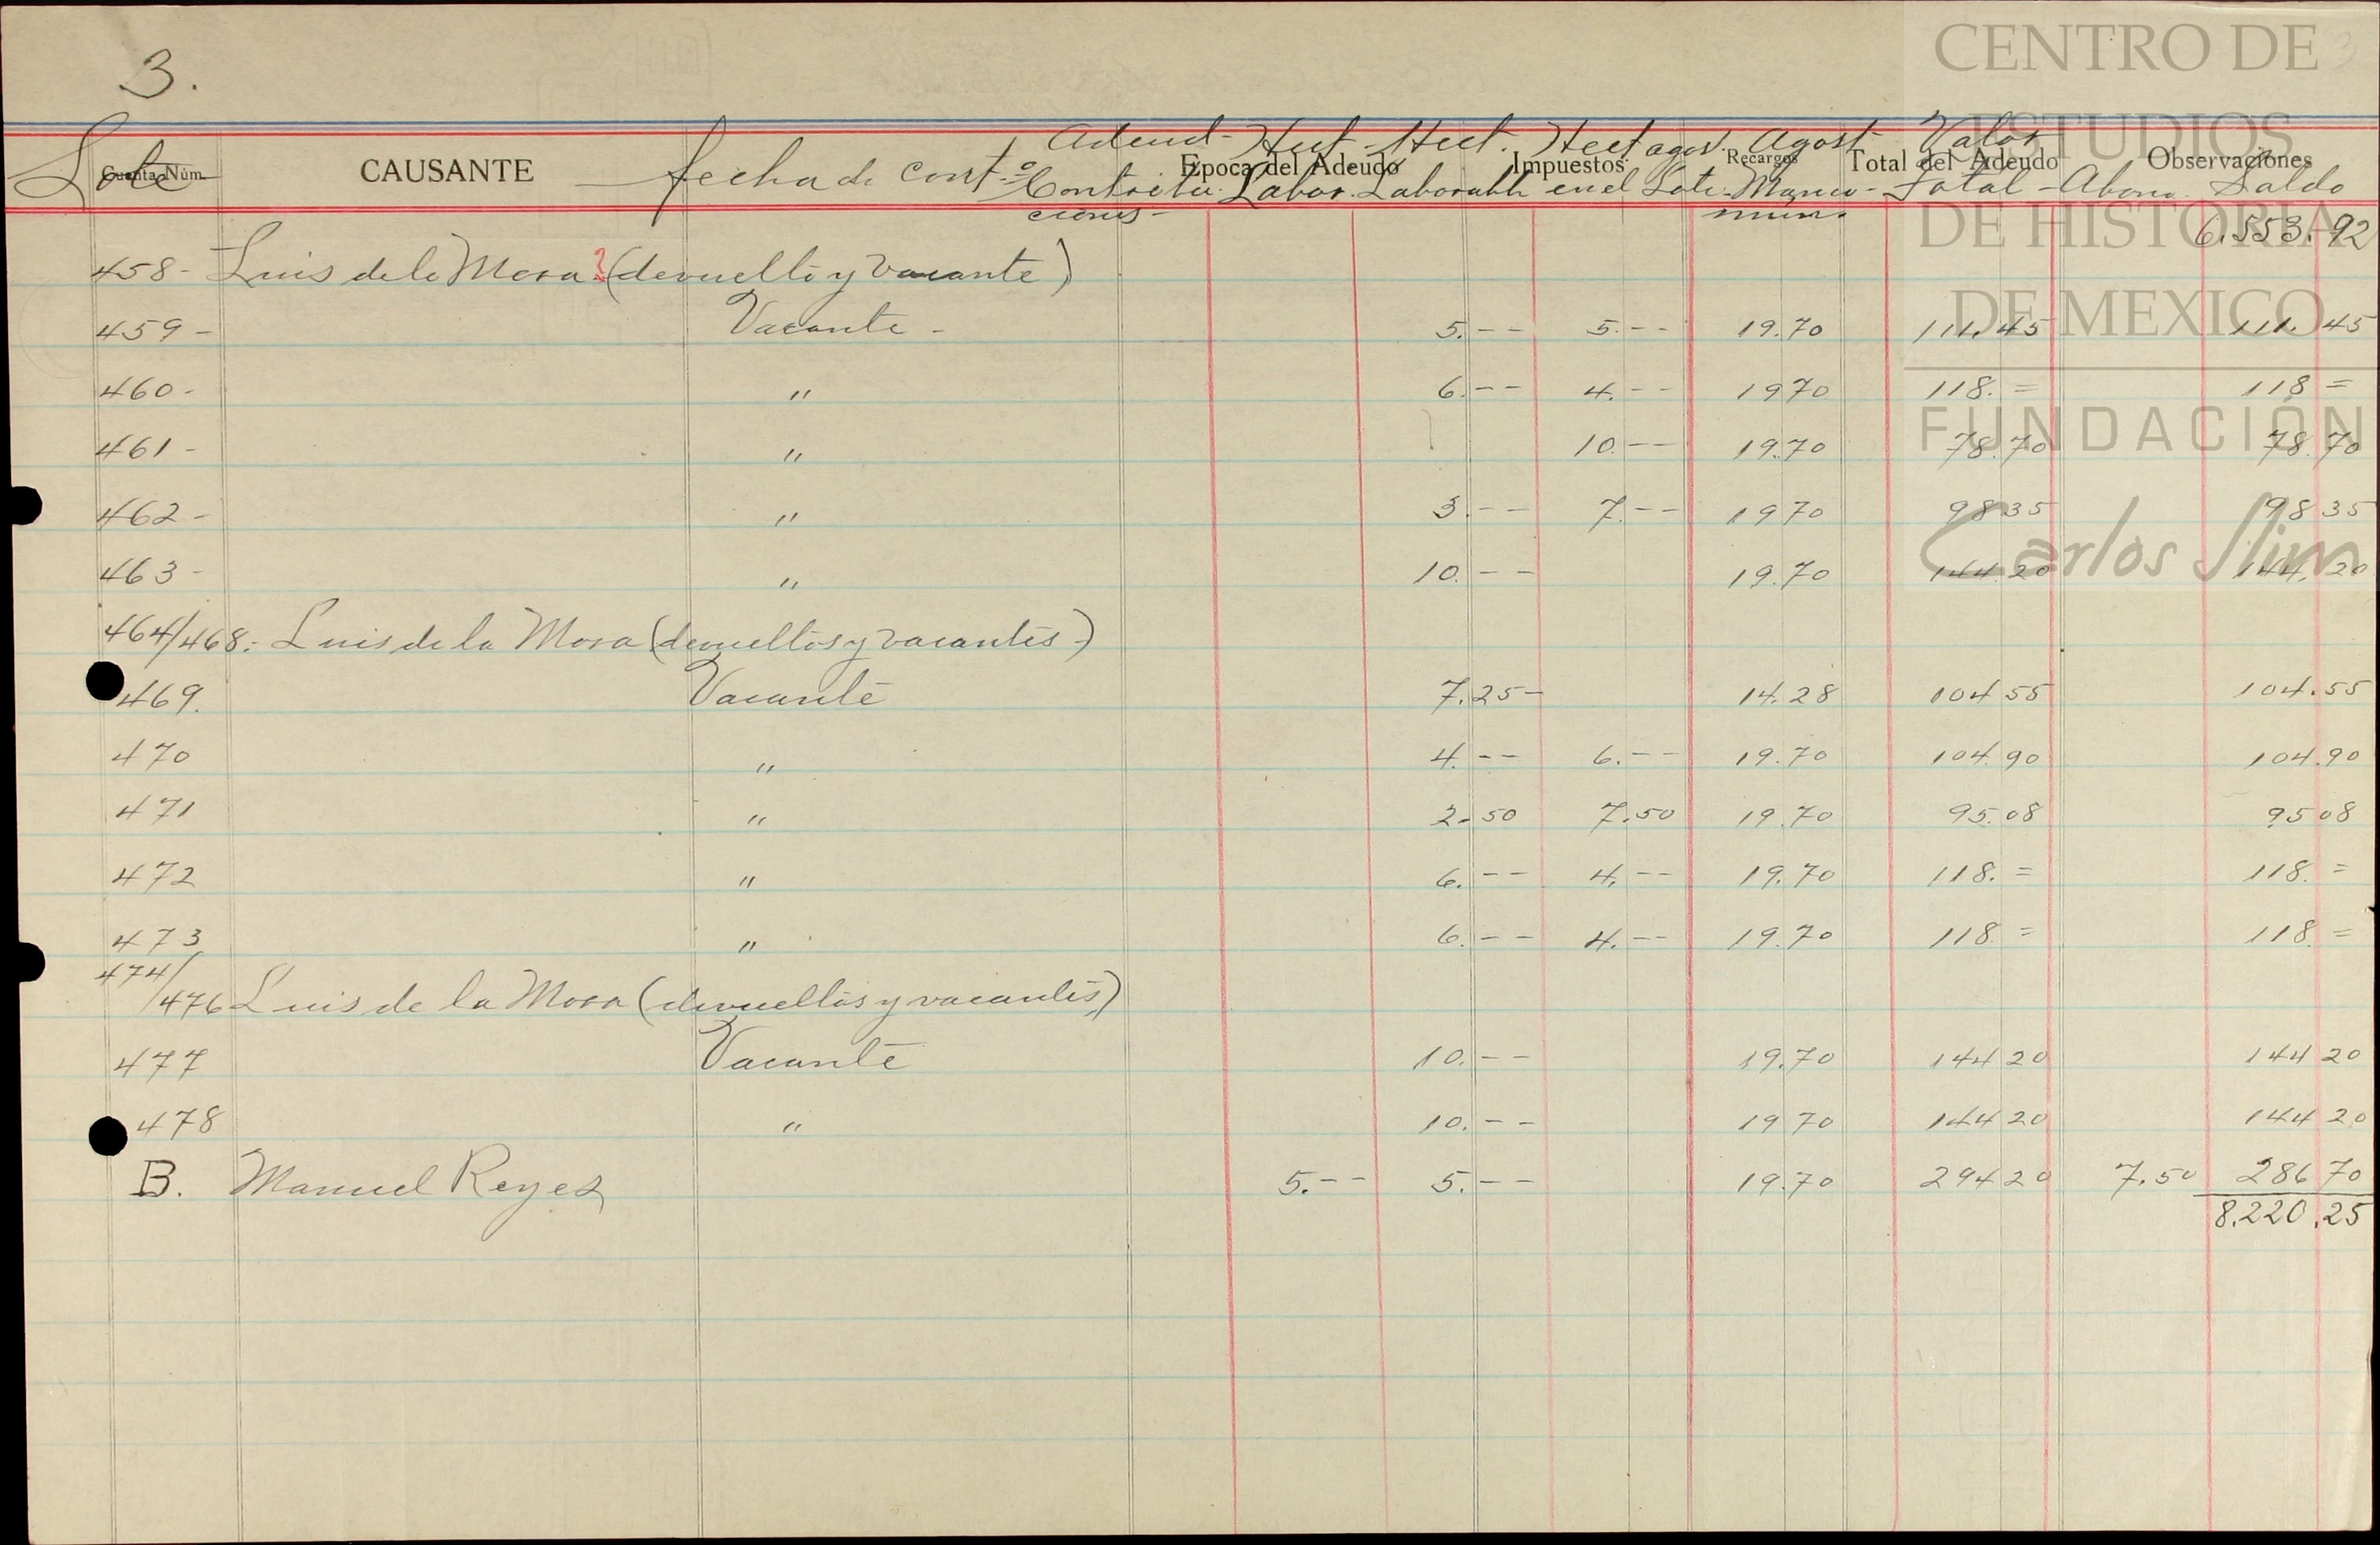 3.
CENTRO DE
ESTUDIOS
DE HISTORIA
DE MEXICO
FUNDACIÓN
Carlos Slim
Adeud- Hect- Hect. Hect agos. Agost Valor
Lote Cuenta Núm. CAUSANTE fecha de cont.º Epoca del Adeudo Impuestos Recargos Total del Adeudo Observaciones
Contribu- Labor. Laborable en el Lote- Manco- total - Abono. Saldo
ciones- mun.
6.553.92
458- Luis de la Mora? (devuelto y vacante)
459- Vacante- 5.-- 5.-- 19.70 111.45 111.45
460- " 6.-- 4.-- 1970 118.= 118=
461- " 10.-- 19.70 78.70 78.70
462- " 3.-- 7.-- 1970 9835 9835
463- " 10.-- 19.70 144.20 144.20
464/468.- Luis de la Mora (devueltos y vacantes)
469. Vacante 7.25- 14.28 104 55 104.55
470 " 4.-- 6.-- 19.70 104.90 104.90
471 " 2.50 7.50 19.70 95.08 9508
472 " 6.-- 4.-- 19.70 118.= 118.=
473 " 6.-- 4.-- 19.70 118= 118.=
474/
/476 Luis de la Mora (devueltos y vacantes)
477 Vacante 10.-- 19.70 144 20 144 20
478 " 10.-- 19 70 144 20 144 20
B. Manuel Reyes 5.-- 5.-- 19.70 294 20 7.50 286 70
8.220.25